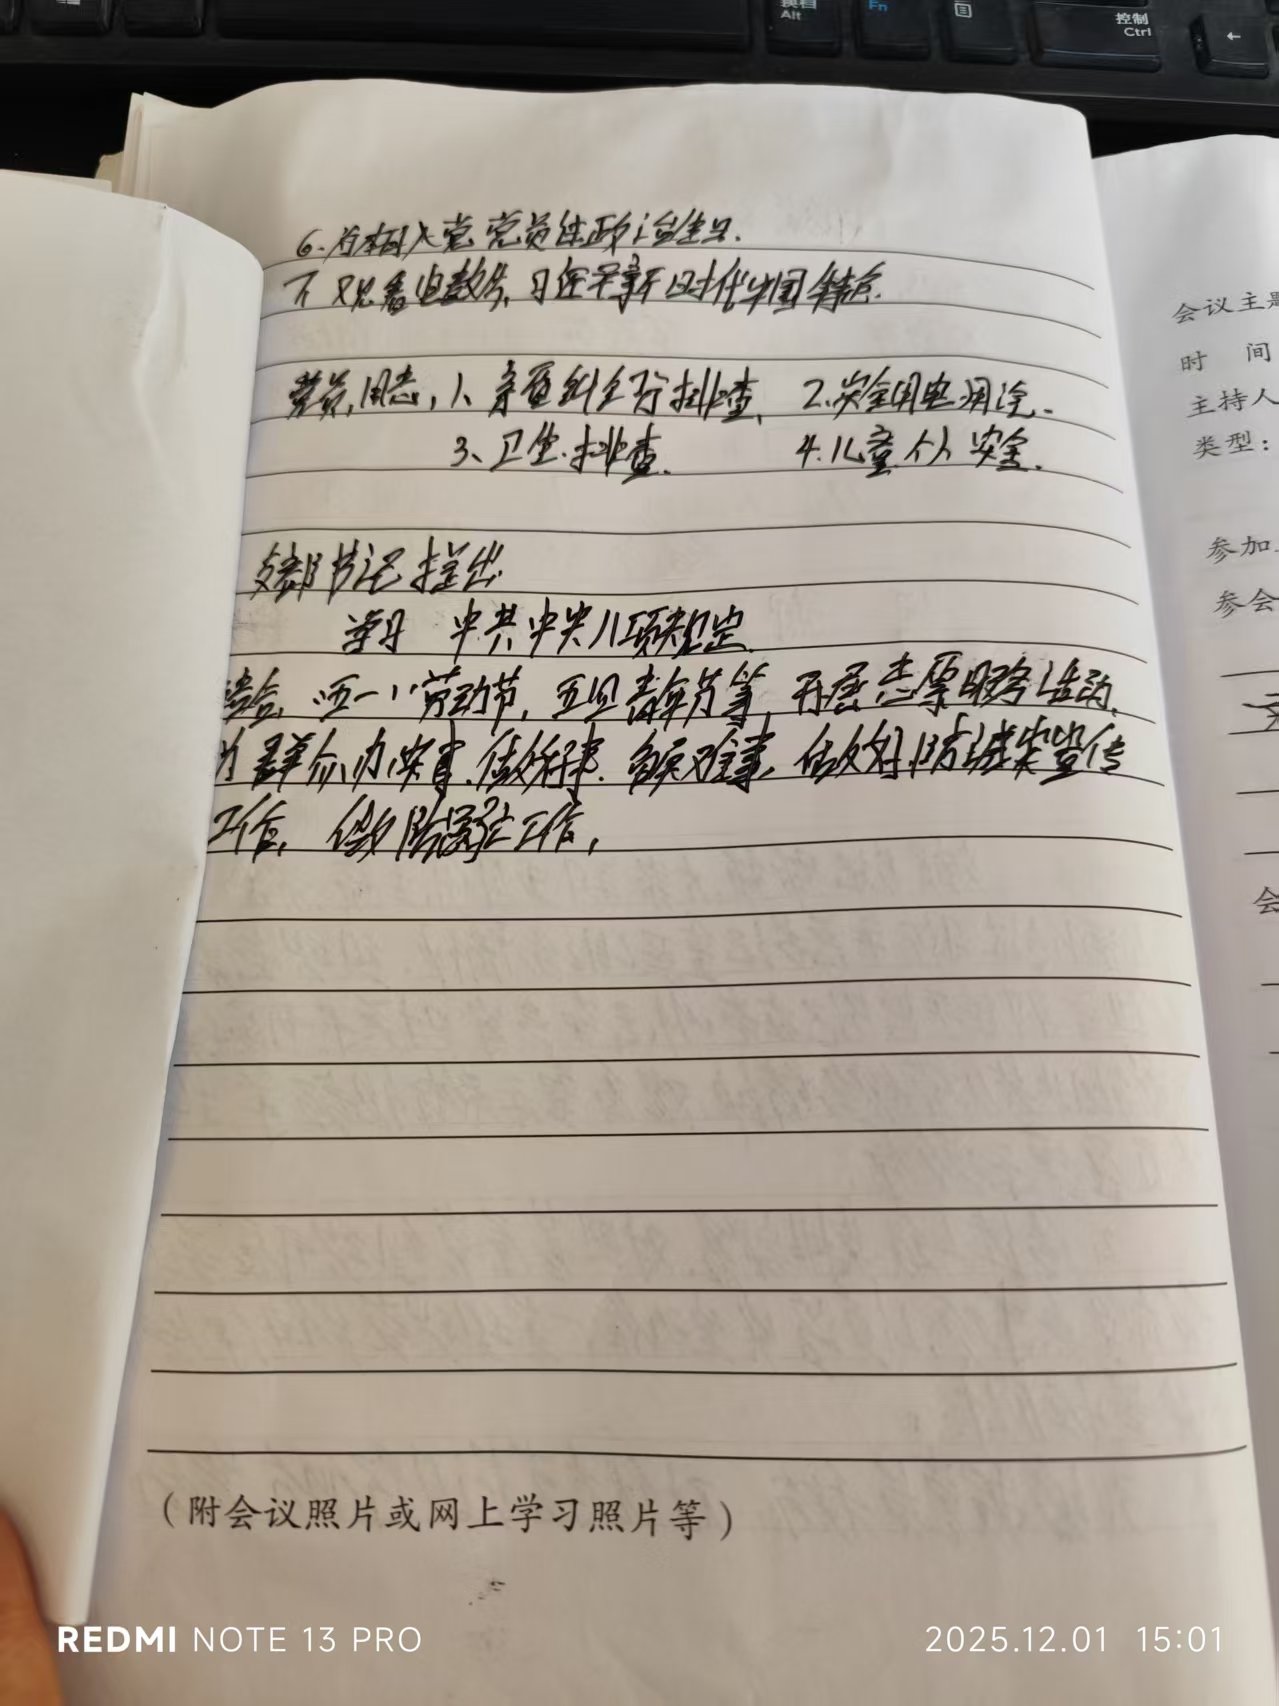 6.为本月入党党员过政治生日.
不 观看电教片, 习近平新时代中国特色.
党员,同志, 1、 进行排查, 2.安全用电用气.
3、卫生.排查. 4.儿童个人安全.
支部书记提出.
学习 中共中央八项规定.
结合, "五一"劳动节, 五四青年节等, 开展志愿服务活动,
为群众办实事.做好事. 解难事, 做好防诈宣传
工作, 做 工作,
(附会议照片或网上学习照片等)
会议主题
时 间
主持人
类型：
参加
参会
会
换档
Alt
Fn
控制
Ctrl
←
REDMI NOTE 13 PRO
2025.12.01 15:01